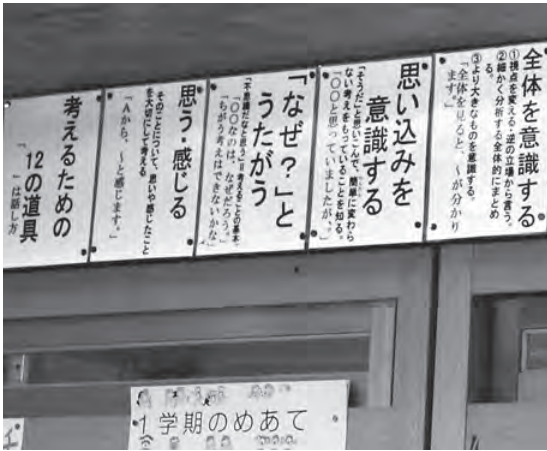 全体を意識する
①視点を変える・逆の立場から言う。
②細かく分析する全体的にまとめ
る。
③より大きなものを意識する。
「全体を見ると、〜が分かり
ます。」
思い込みを
意識する
「そうだ」と思いこんで、簡単に変わら
ない考えをもっていることを知る。
「〇〇と思っていましたが、」
「なぜ?」と
うたがう
「不思議だなと思う」=考えることの基本。
「〇〇なのは、なぜだろう。」
「ちがう考えはできないかな」
思う・感じる
そのことについて、思いや感じたこと
を大切にして考える
「Aから、〜と感じます。」
考えるための
12の道具
「 」は話し方
1学期のめあて